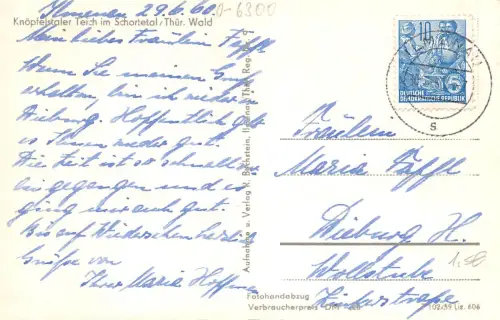 Ilmenau 29.6.60
0-6300
Knöpfelstaler Teich im Schortetal/Thür. Wald
Mein liebes Fräulein Apffl
Wenn Sie meinen Gruß
erhalten, bin ich wieder in
Dieburg. Hoffentlich geht
es Ihnen wieder gut.
Die Zeit ist so schnell
hingegangen und es
ging mir auch gut.
Bis auf Wiedersehen herzliche
Grüße von
Ihrer Maria Hoffman
Aufnahme u. Verlag K. Bechstein, Ilmenau/Thür. Reg.-Nr. 9
10
DEUTSCHE
DEMOKRATISCHE REPUBLIK
ILMENAU
s
Fräulein
Maria
Dieburg H.
Wollstube
1,50
Fotohandabzug
Verbraucherpreis DM
102/59 Liz. 606